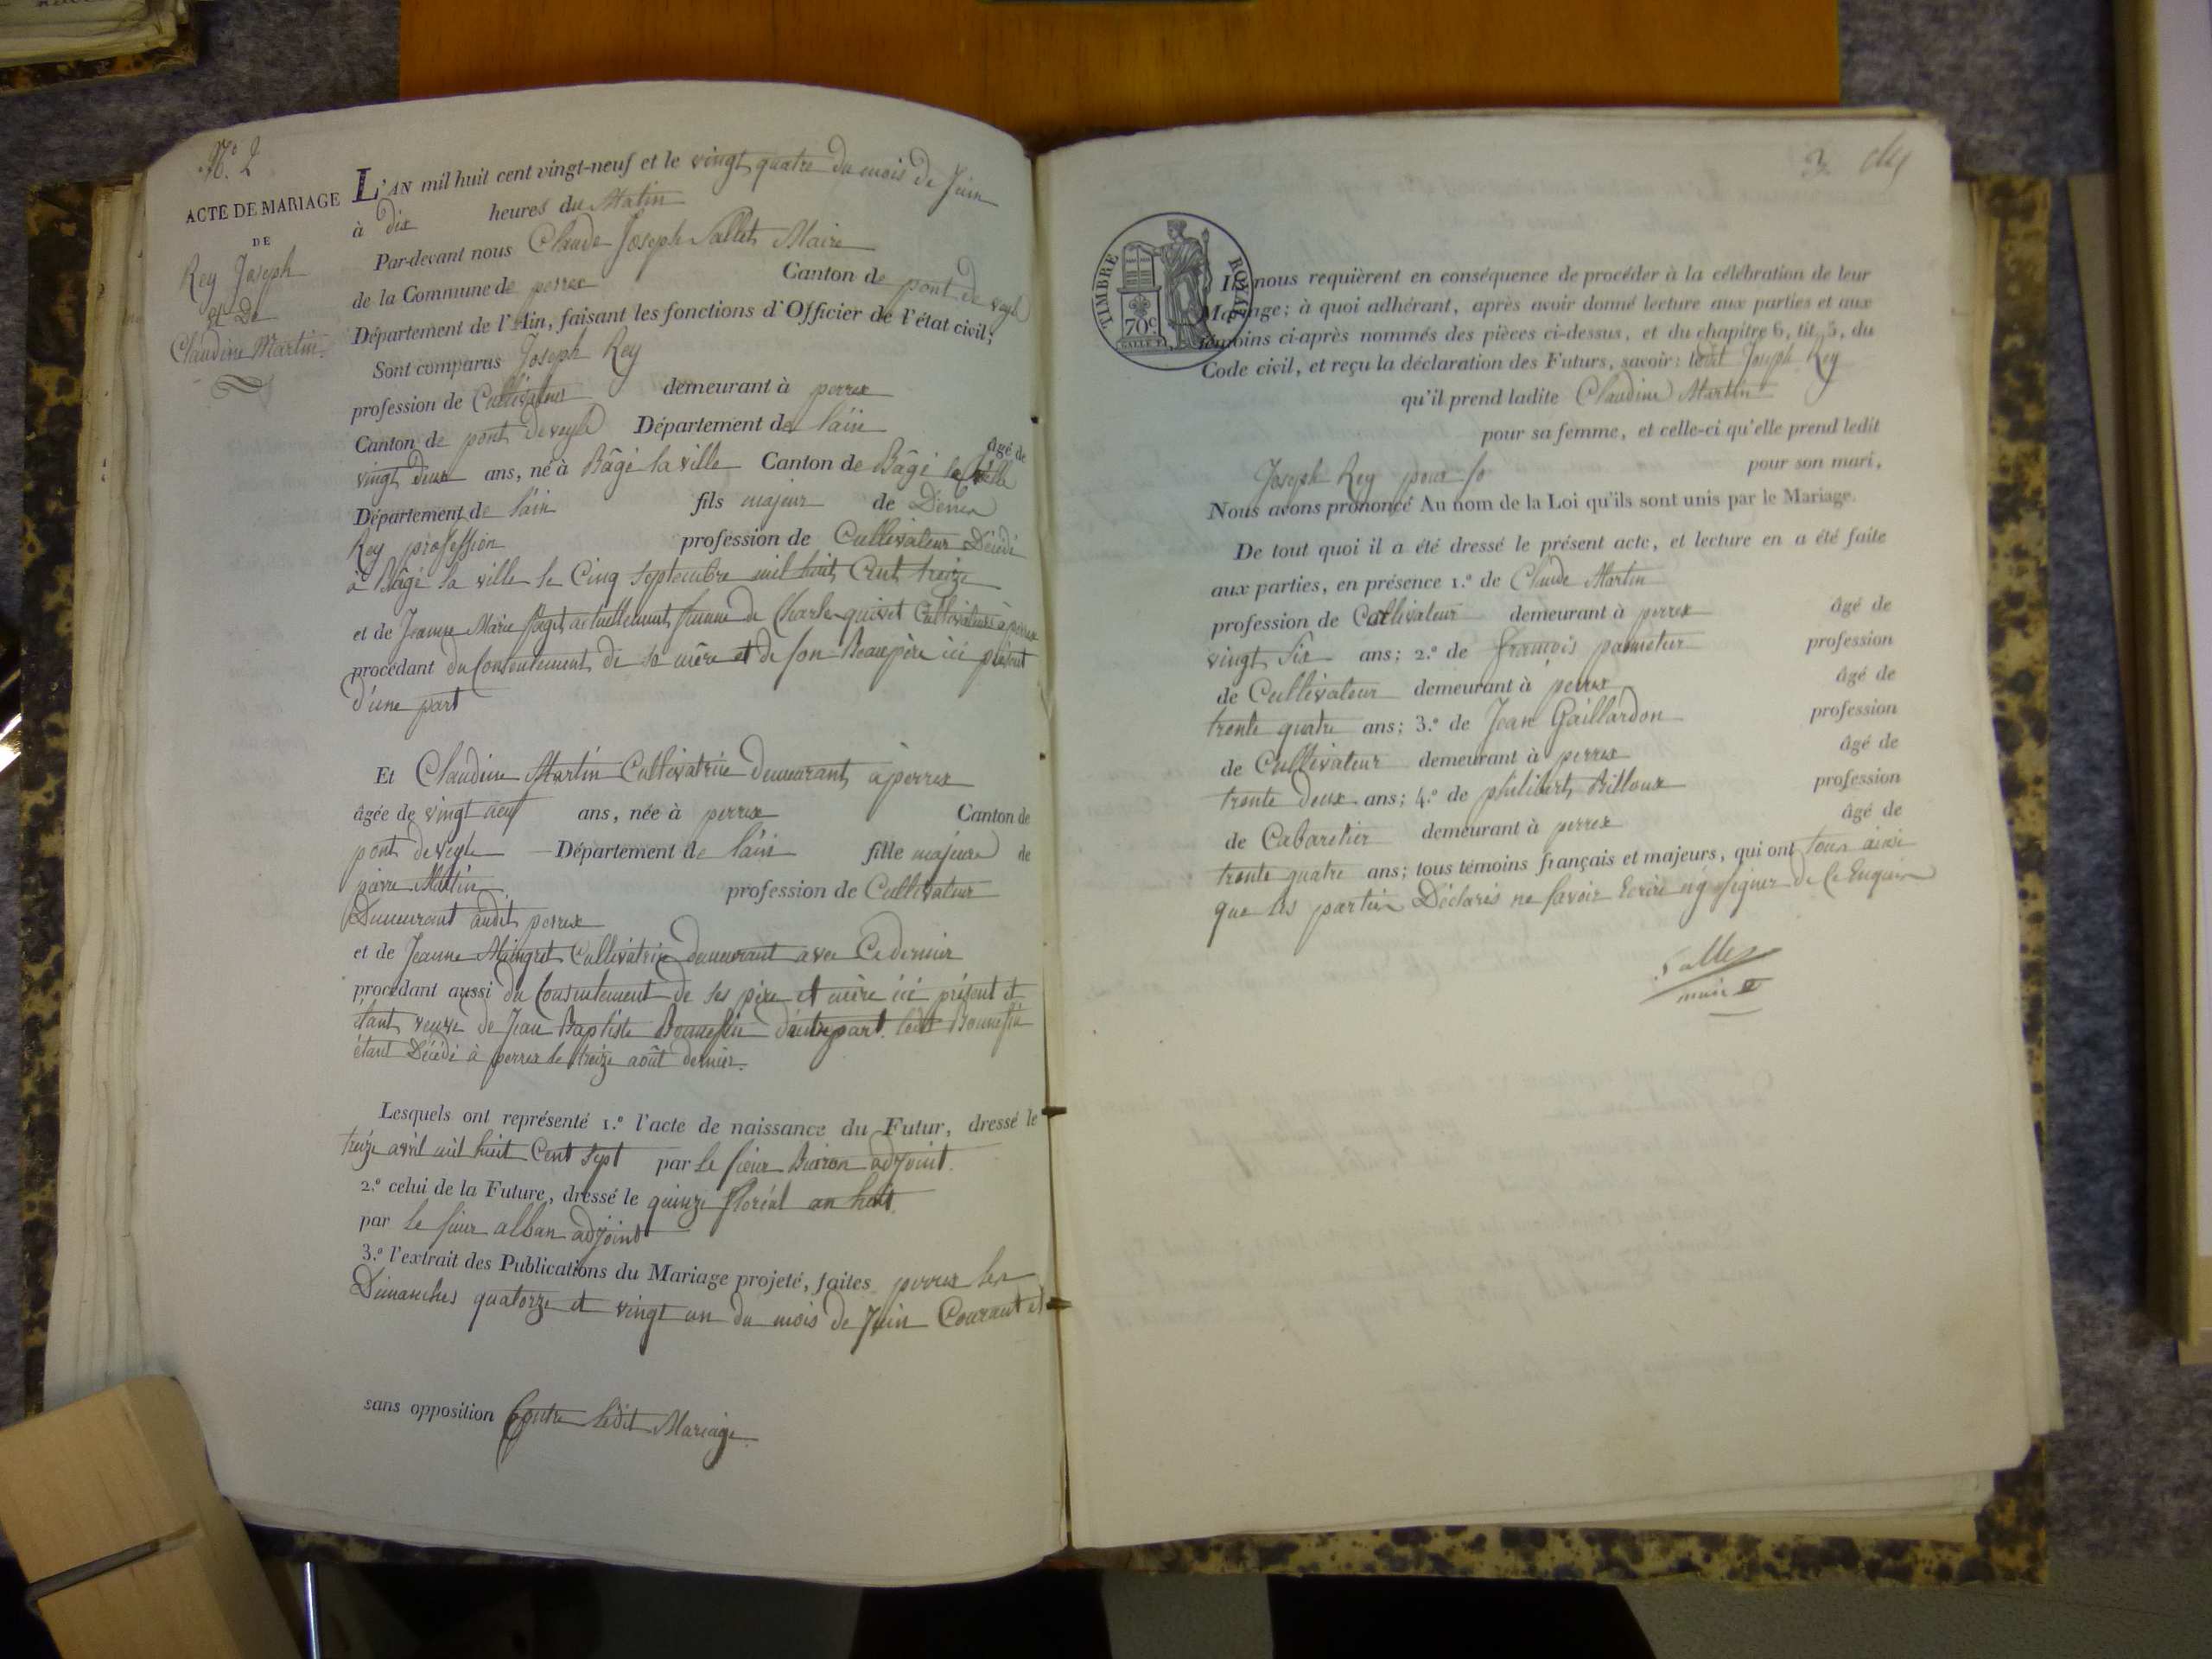 N.° 2
ACTE DE MARIAGE
DE
Rey Joseph
et De
Claudine Martin.
L'AN mil huit cent vingt-neuf et le vingt quatre du mois de Juin
à dix heures du Matin
Par-devant nous Claude Joseph Sallet Maire
de la Commune de perrex Canton de pont de veyle
Département de l'Ain, faisant les fonctions d'Officier de l'état civil;
Sont comparus Joseph Rey
profession de Cultivateur demeurant à perrex
Canton de pont de veyle Département de l'áin âgé de
vingt deux ans, né à Bâgé la ville Canton de Bâgé le
Département de l'áin fils majeur de Denis
Rey profession profession de Cultivateur Décédé
a Bâgé la ville le Cinq Septembre mil huit Cent treize
et de Jeanne Marie actuellement femme de Charle quivet Cultivateur à perrex
procédant du Consentement de sa mère et de son Beaupère ici présent
d'une part
Et Claudine Martin Cultivatrice Demeurant à perrex
âgée de vingt neuf ans, née à perrex Canton de
pont de veyle Département de l'áin fille majeure de
pierre Martin profession de Cultivateur
Demeurant audit perrex
et de Jeanne Maingret Cultivatrice demeurant avec Ce dernier
procédant aussi du Consentement de ses père et mère ici présent et
étant veuve de Jean Baptiste d'autre part. ledit
étant Décédé à perrex le treize août dernier.
Lesquels ont représenté 1.° l'acte de naissance du Futur, dressé le
treize avril mil huit Cent Sept par le sieur adjoint.
2.° celui de la Future, dressé le quinze floréal an huit
par le sieur alban adjoint
3.° l'extrait des Publications du Mariage projeté, faites perrex les
Dimanches quatorze et vingt un du mois de Juin Courant et
sans opposition Contre ledit Mariage.
3
TIMBRE ROYAL
70c
Ils nous requièrent en conséquence de procéder à la célébration de leur
Mariage; à quoi adhérant, après avoir donné lecture aux parties et aux
témoins ci-après nommés des pièces ci-dessus, et du chapitre 6, tit. 5, du
Code civil, et reçu la déclaration des Futurs, savoir: ledit Joseph Rey
qu'il prend ladite Claudine Martin
pour sa femme, et celle-ci qu'elle prend ledit
Joseph Rey pour so pour son mari,
Nous avons prononcé Au nom de la Loi qu'ils sont unis par le Mariage.
De tout quoi il a été dressé le présent acte, et lecture en a été faite
aux parties, en présence 1.° de Claude Martin
profession de Cultivateur demeurant à perrex âgé de
vingt six ans; 2.° de françois profession
de Cultivateur demeurant à perrex âgé de
trente quatre ans; 3.° de Jean Gaillardon profession
de Cultivateur demeurant à perrex âgé de
trente Deux ans; 4.° de philibert Billoux profession
de Cabaretier demeurant à perrex âgé de
trente quatre ans; tous témoins français et majeurs, qui ont tous ainsi
que les parties Déclarés ne savoir Ecrire ny signer de Ce Enquis
Sallet
maire